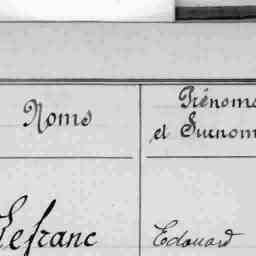 Noms
Prénoms
et Surnom
Lefranc
Edouard